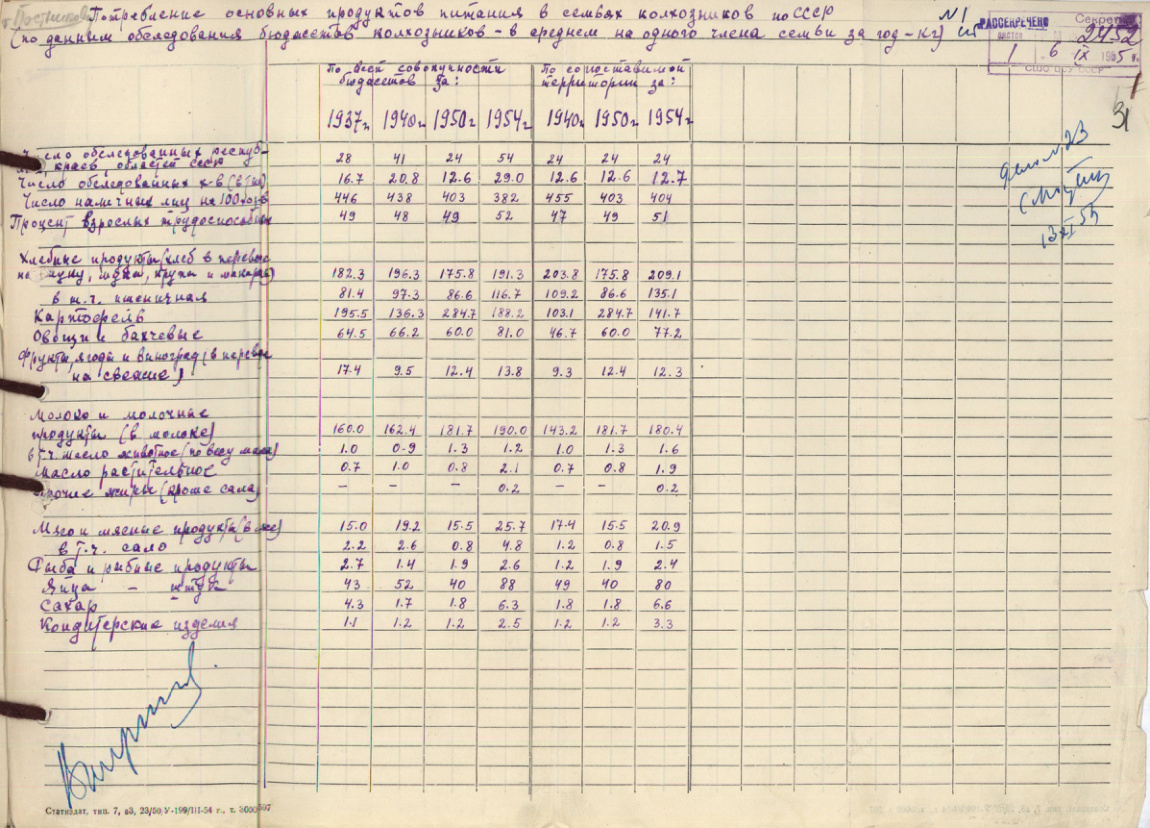 т. Постников
Потребление основных продуктов питания в семьях колхозников по СССР
(по данным обследования бюджетов колхозников - в среднем на одного члена семьи за год - кг)
№1
РАССЕКРЕЧЕНО
Секретно
2452
1 6 IX 1955 г.
ЦСУ СССР
31
дело № 23
13 XI 55
По всей совокупности бюджетов за: По сопоставимой территории за:
1937г. 1940г. 1950г. 1954г. 1940г. 1950г. 1954г.
Число обследованных респуб-
лик, краев, областей СССР 28 41 24 54 24 24 24
Число обследованных х-в (в тыс) 16.7 20.8 12.6 29.0 12.6 12.6 12.7
Число наличных лиц на 100 хоз-в 446 438 403 382 455 403 404
Процент взрослых трудоспособных 49 48 49 52 47 49 51
Хлебные продукты (хлеб в переводе
на муку, мука, крупа и макароны) 182.3 196.3 175.8 191.3 203.8 175.8 209.1
в т.ч. пшеничная 81.4 97.3 86.6 116.7 109.2 86.6 135.1
Картофель 195.5 136.3 284.7 188.2 103.1 284.7 141.7
Овощи и бахчевые 64.5 66.2 60.0 81.0 46.7 60.0 77.2
Фрукты, ягоды и виноград (в переводе
на свежие) 17.4 9.5 12.4 13.8 9.3 12.4 12.3
Молоко и молочные
продукты (в молоке) 160.0 162.4 181.7 190.0 143.2 181.7 180.4
в т.ч. масло животное (по весу масла) 1.0 0.9 1.3 1.2 1.0 1.3 1.6
Масло растительное 0.7 1.0 0.8 2.1 0.7 0.8 1.9
Прочие жиры (кроме сала) - - - 0.2 - - 0.2
Мясо и мясные продукты 15.0 19.2 15.5 25.7 17.4 15.5 20.9
в т.ч. сало 2.2 2.6 0.8 4.8 1.2 0.8 1.5
Рыба и рыбные продукты 2.7 1.4 1.9 2.6 1.2 1.9 2.4
Яйца - штук 43 52 40 88 49 40 80
Сахар 4.3 1.7 1.8 6.3 1.8 1.8 6.6
Кондитерские изделия 1.1 1.2 1.2 2.5 1.2 1.2 3.3
Статиздат, тип. 7, вз, 23/50 У-199/III-54 г., т. 3000 507